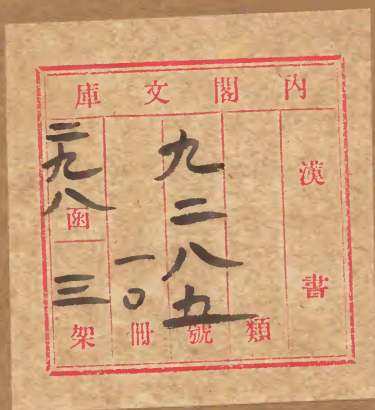 內閣文庫
漢書類
九二八五號
一〇冊
二九八函
三架